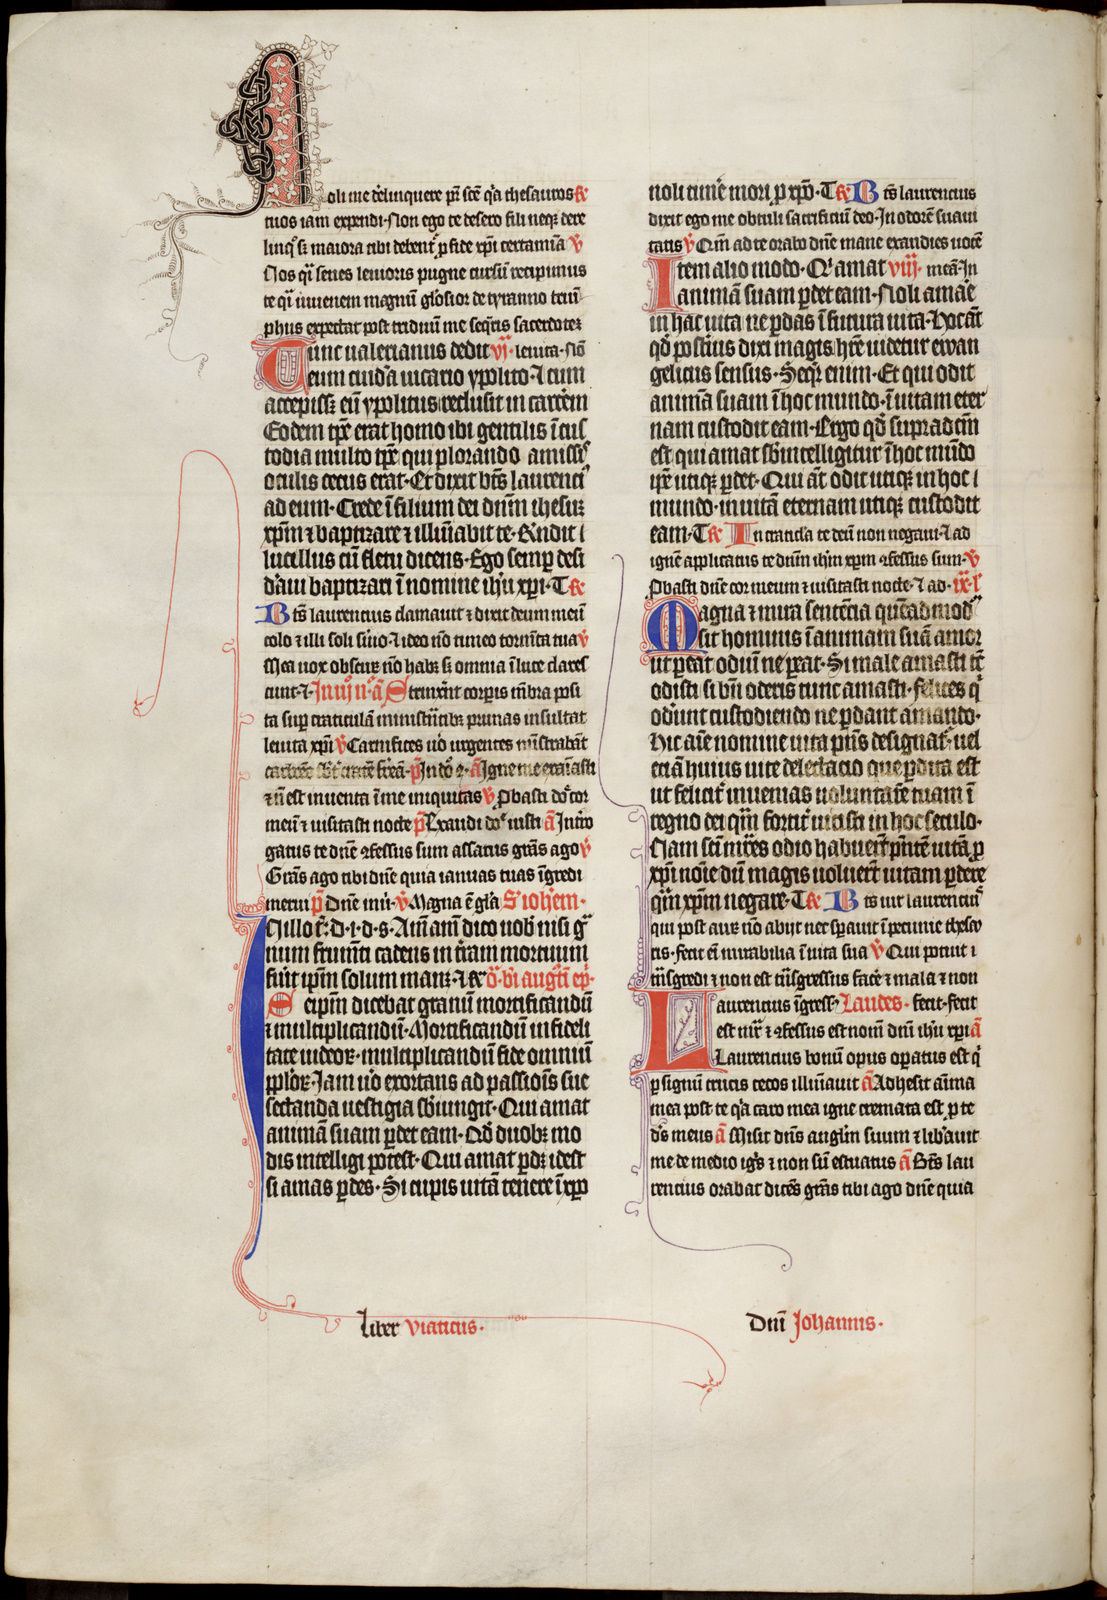 Noli me derelinquere pr̄ scē q̄a thesauros R
tuos iam expendi · Non ego te desero fili neqꝫ dere
linqͦ sꝫ maiora tibi debent᷑ ꝓ fide xp̄i certamīa ꝟ
Nos qͣsi senes leuioris pugne cursū recipimus
te qͣsi iuuenem magnū gl̄osior de tyranno trium̄
phus expectat post triduū me seq̄ris sacerdoteꝫ
Tunc ualerianus dedit vij · leuita · Nō
eum cuidā uicario ypolito · ⁊ cum
accepissꝫ eū ypolitus reclusit in carcerem
Eodem tp̄e erat homo ibi gentilis ī cus
todia multo tp̄e qui plorando amissis
oculis cecus erat · Et dixit bt̄s laurenciꝰ
ad eum · Crede ī filium dei dnm̄ ihesuꝫ
xp̄m ⁊ baptizare ⁊ illuīabit te · Rn̄dit
lucillus cū fletu dicens · Ego semꝑ desi
d̓aui baptizari ī nomine ih̄u xp̄i · T R
Bt̄s laurencius clamauit ⁊ dixit deum meū
colo ⁊ illi soli s̓uio · ⁊ ideo nō timeo torm̄ta tua ꝟ
Mea nox obscuꝝ nō habꝫ sꝫ omnia ī luce clares
cunt · ⁊ · In iijͦ nͦ · ā Strinxer̄t corpis mēbra posi
ta suꝑ craticulā ministrātibꝫ prunas insultat
leuita xp̄i ꝟ Carnifices uͦo urgentes ministrabāt
carbones ꝑ̄ In dōͦ ā Igne me examīasti
⁊ nō est inuenta ī me iniquitas ꝟ Probasti dōͦ cor
meū ⁊ uisitasti nocte ꝑ̄ Exaudi dōͦ iusti ā Int̓ro
gatus te dnē ꝯfessus sum assatus grās ago ꝟ
Grās ago tibi dnē quia ianuas tuas īgredi
merui ꝑ̄ Dnē īn uir̄ · ꝟ Magna ē gl̄a · S' ioh̄em ·
In illo t̄ · d · i · d · s · Amē amē dico uob̄ nisi gͣ
num frumēti cadens in t̓ram mortuum
fu̓it ip̄m solum manꝫ · ⁊ R̄ · O · bi augͣti ep̄i ·
Se eip̄m dicebat granū mortificandū
⁊ multiplicandū · Mortificandū infideli
tate iudeoꝝ · multiplicandū fide omniū
ꝓploꝝ · Iam uͦo exortans ad passiōis sue
sectanda uestigia sb̄iungit · Qui amat
animā suam ꝑdet eam · Qd̓ duobꝫ mo
dis intelligi potest · Qui amat ꝑdꝫ idest
si amas ꝑdes · Si cupis uitā tenere ī xp̄o
noli timere mori ꝓ xp̄o · T R Bt̄s laurencius
dixit ego me obtuli sacrificiū deo · In odorē suaui
tatis ꝟ Qm̄ ad te orabo dnē mane exaudies uocē
Item alio modo · Qͥ amat viij · meā · In
animā suam ꝑdet eam · Noli amar̄e
in hac uita ne ꝑdas ī futura uita · Hoc aūt
qd̓ post̓ius dixi magis hr̄e uidetur ewan
gelicus sensus · Seqͥtᷣ enim · Et qui odit
animā suam ī hoc mundo · ī uitam eter
nam custodit eam · Ergo qd̓ supradcm̄
est qui amat sb̄intelligitur ī hoc mūdo
ip̄e utiqꝫ ꝑdet · Qui aūt odit utiqꝫ in hoc
mundo · in uitā eternam utiqꝫ custodit
eam · T R In craticla te deū non negaui · ⁊ ad
ignē applicatus te dnm̄ ih̄m xp̄m ꝯfessus sum · ꝟ
Probasti dnē cor meum ⁊ uisitasti nocte · ⁊ ad · ix · l'
Magna ⁊ mira sentēcia quēadmodͫ
sit hominis ī animam suā amor
ut ꝑeat odiū ne ꝑeat · Si male amasti tc̄
odisti si bn̄ oderis tunc amasti · felices qͥ
oderūt custodiendo ne ꝑdant amando ·
Hic aūt nomine uita p̓us designatᷣ · uel
eciā huius uite delectacio que ꝑdita est
ut felicit̓ inuenias uoluntatē tuam ī
regno dei qͣm fortit̓ uicisti in hoc seculo ·
Nam scī mr̄es odio habuer̄t pn̄tē uitā ꝓ
xp̄i noīe dū magis uoluer̄t uitam ꝑdere
qͣm xp̄m negare · T R Bt̄s uir laurenciꝰ
qui post auꝝ nō abijt nec sperauit ī pecunie thesau
ris · fecit eī mirabilia ī uita sua ꝟ Qui potuit
trāsgredi ⁊ non est trāsgressus facere mala ⁊ non
Laurencius īgress᷒ Laudes · fecit · fecit
est mr̄ ⁊ ꝯfessus est nom̄ dnī ih̄u xp̄i ā
Laurencius bonū opus opatus est qͥ
ꝑ signū crucis cecos illuīauit ā Adhesit aīma
mea post te qͣa caro mea igne cremata est ꝓ te
ds̄ meus ā Misit dnūs angl̄m suum ⁊ lib̓auit
me de medio igīs ⁊ non sū estuatus ā Bt̄s lau
rencius orabat dicēs grās tibi ago dnē quia
Liber viaticus · Dnī Johannis ·